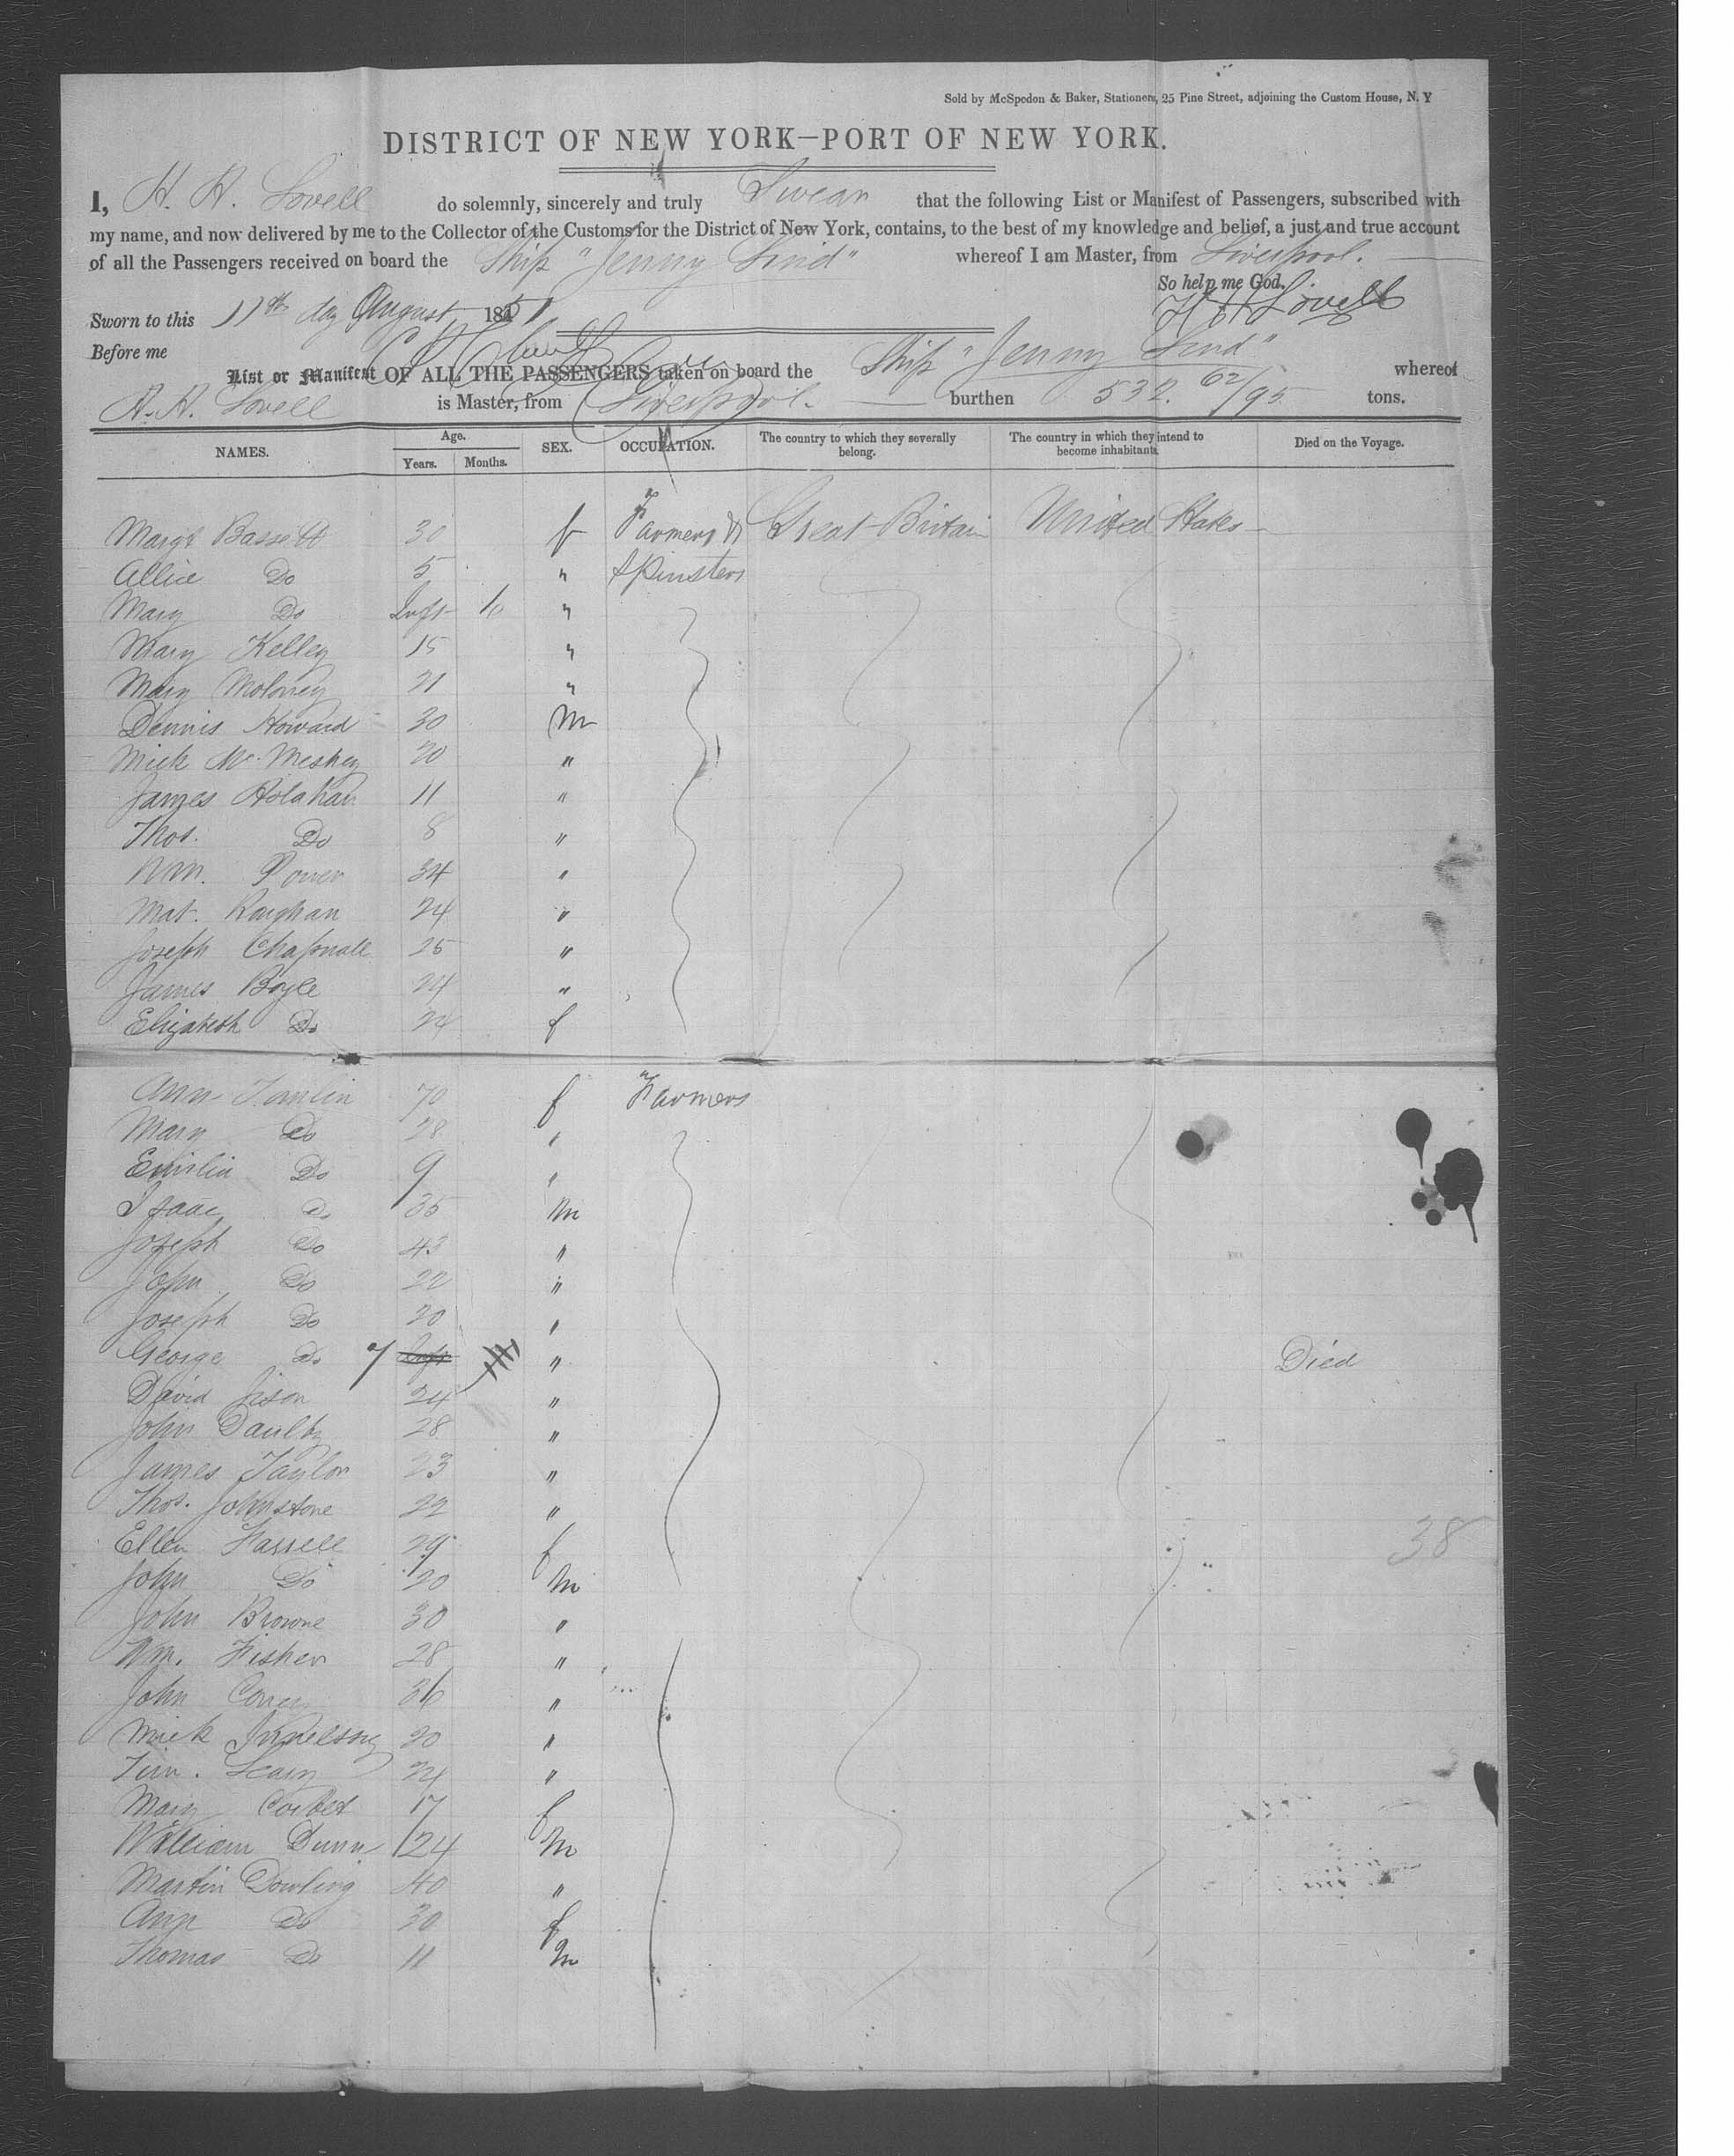 Sold by McSpedon & Baker, Stationers, 25 Pine Street, adjoining the Custom House, N. Y
DISTRICT OF NEW YORK—PORT OF NEW YORK.
I, H. H. Lovell do solemnly, sincerely and truly Swear that the following List or Manifest of Passengers, subscribed with
my name, and now delivered by me to the Collector of the Customs for the District of New York, contains, to the best of my knowledge and belief, a just and true account
of all the Passengers received on board the Ship "Jenny Lind" whereof I am Master, from Liverpool.
So help me God.
Sworn to this 11th day August 1851 H H Lovell
Before me
List or Manifest OF ALL THE PASSENGERS taken on board the Ship "Jenny Lind" whereof
H. H. Lovell is Master, from Liverpool. burthen 532. 62/95 tons.
NAMES. Age. Years. Months. SEX. OCCUPATION. The country to which they severally belong. The country in which they intend to become inhabitants. Died on the Voyage.
Margt Bassett 30 f Farmers & Great Britain United States
Allice Do 5 " Spinsters
Mary Do Inft 10 "
Mary Kelley 15 "
Mary Moloney 21 "
Dennis Howard 30 M
Mick Mc 20 "
James Holahan 11 "
Thos. Do 8 "
Wm. Power 34 "
Mat. Roughan 24 "
Joseph 25 "
James Boyle 24 "
Elizabeth Do 24 f
Ann Tomlin 70 f Farmers
Mary Do 28 "
Do 9 "
Isaac Do 35 M
Joseph Do 43 "
John Do 22 "
Joseph Do 20 "
George Do 7 Inft " Died
David 24 "
John Daulby 28 "
James Taylor 23 "
Thos. Johnstone 22 "
Ellen Farrell 29 f 38
John Do 20 M
John Browne 30 "
Wm. Fisher 28 "
John 36 "
Mick 20 "
Tim. 24 "
Mary Corbet 17 f
William Dunn 24 M
Martin Dowling 40 "
Ann Do 30 f
Thomas Do 11 M